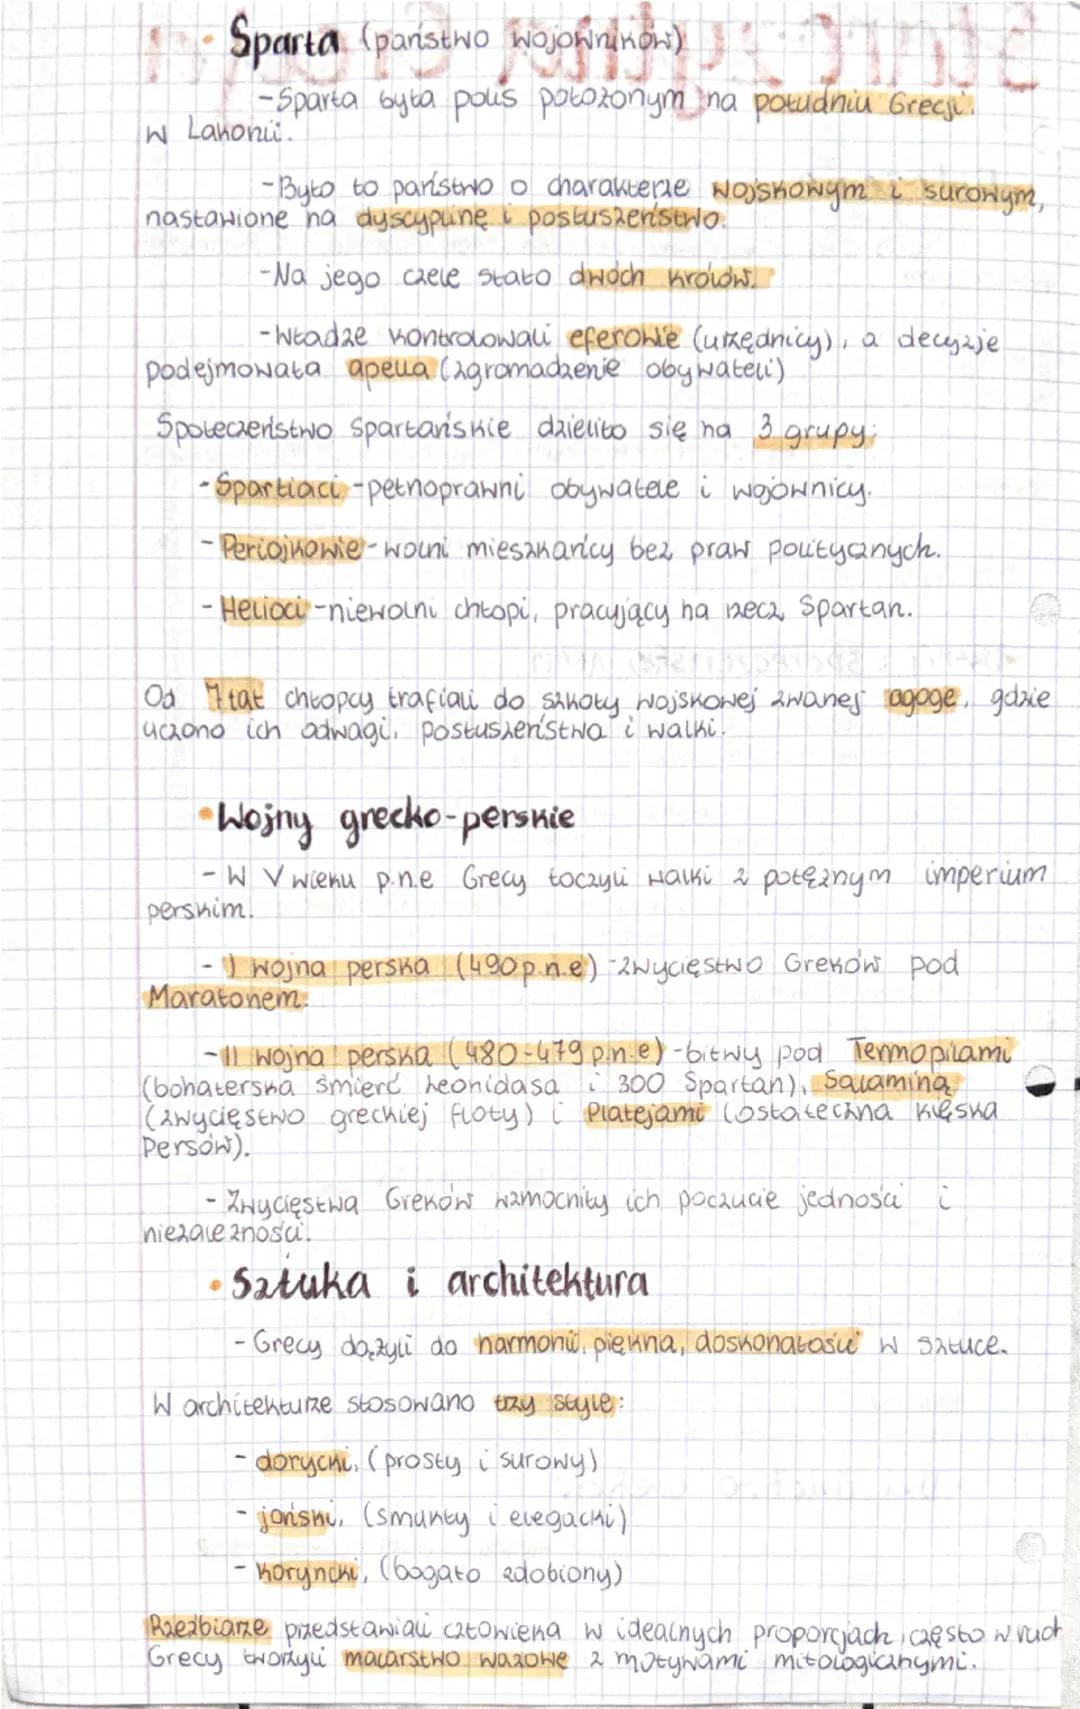 • Sparta (państwo wojowników)
- Sparta była polis położonym na południu Grecji.
w Lakonii.
- Było to państwo o charakterze wojskowym i surowym,
nastawione na dyscyplinę i posłuszeństwo.
- Na jego czele stało dwóch królów.
- Władze kontrolowali eferowie (urzędnicy), a decyzje
podejmowała apella (zgromadzenie obywateli)
Społeczeństwo Spartańskie dzieliło się na 3 grupy:
- Spartiaci - pełnoprawni obywatele i wojownicy.
- Periojkowie - wolni mieszkańcy bez praw politycznych.
- Helioci - niewolni chłopi, pracujący na rzecz Spartan.
Od 7 lat chłopcy trafiali do szkoły wojskowej zwanej agoge, gdzie
uczono ich odwagi, posłuszeństwa i walki.
• Wojny grecko-perskie
- W V wieku p.n.e Grecy toczyli walki z potężnym imperium
perskim.
- I wojna perska (490 p.n.e) - zwycięstwo Greków pod
Maratonem.
- II wojna perska (480-479 p.n.e) - bitwy pod Termopilami
(bohaterska śmierć Leonidasa i 300 Spartan), Salaminą
(zwycięstwo greckiej floty) i Platejami (ostateczna klęska
Persów).
- Zwycięstwa Greków wzmocniły ich poczucie jedności i
niezależności.
• Sztuka i architektura
- Grecy dążyli do harmonii, piękna, doskonałości w sztuce.
W architekturze stosowano trzy style:
- dorycki, (prosty i surowy)
- joński, (smukły i elegacki)
- koryncki, (bogato zdobiony)
Rzeźbiarze przedstawiali człowieka w idealnych proporcjach, często w ruch
Grecy tworzyli malarstwo wazowe z motywami mitologicznymi.